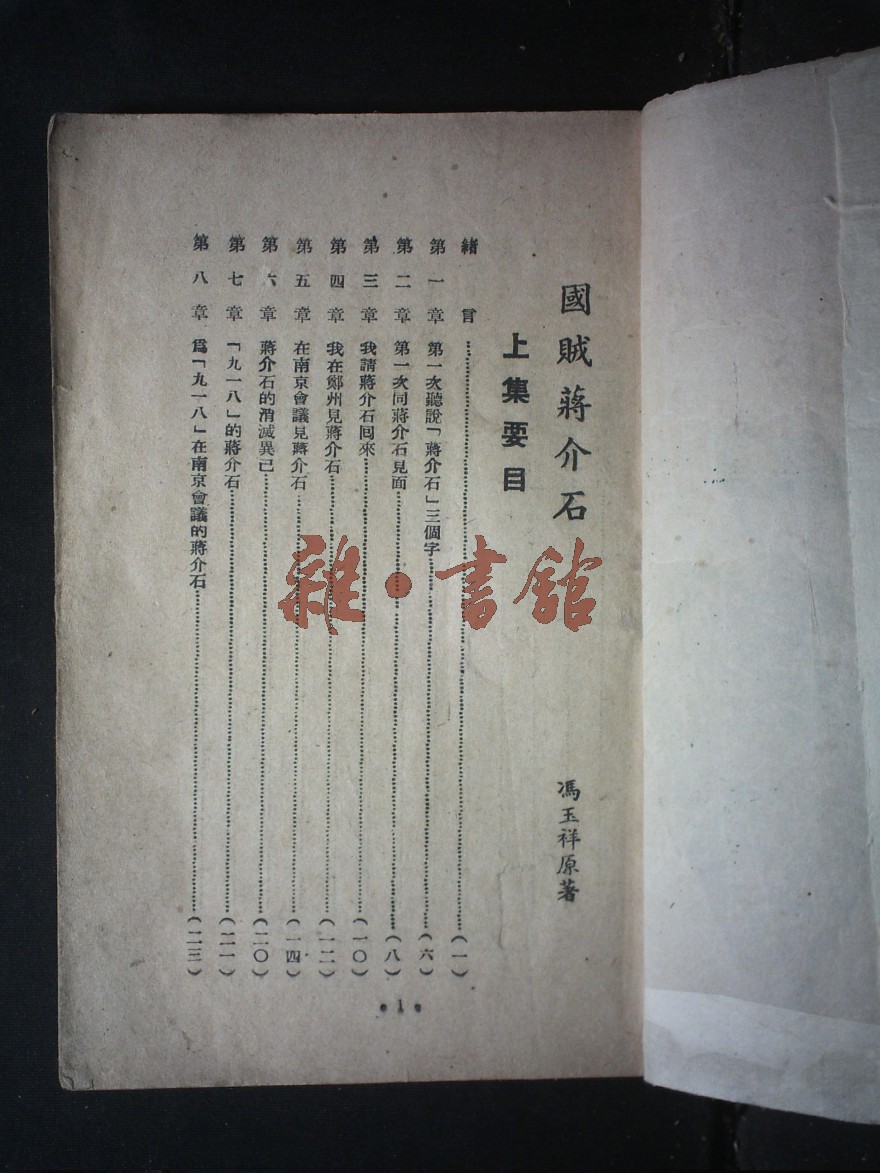 國賊蔣介石
馮玉祥原著
上集要目
緒言……(一)
第一章 第一次聽說「蔣介石」三個字……(六)
第二章 第一次同蔣介石見面……(八)
第三章 我請蔣介石回來……(一〇)
第四章 我在鄭州見蔣介石……(一二)
第五章 在南京會議見蔣介石……(一四)
第六章 蔣介石的消滅異己……(二〇)
第七章 「九一八」的蔣介石……(二一)
第八章 爲「九一八」在南京會議的蔣介石……(二三)
•1•
雜·書館